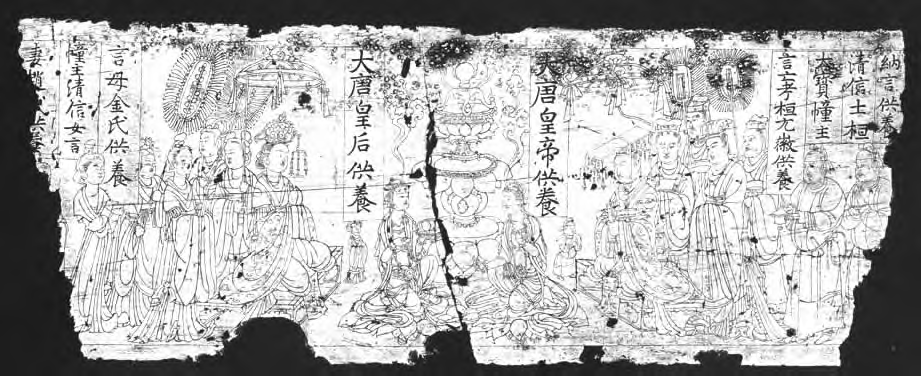 納言供養
清信士桓
大賢幢主
言亡考桓尤徽供養
大唐皇帝供養
大唐皇后供養
言母金氏供養
幢主清信女言
妻趙氏供養